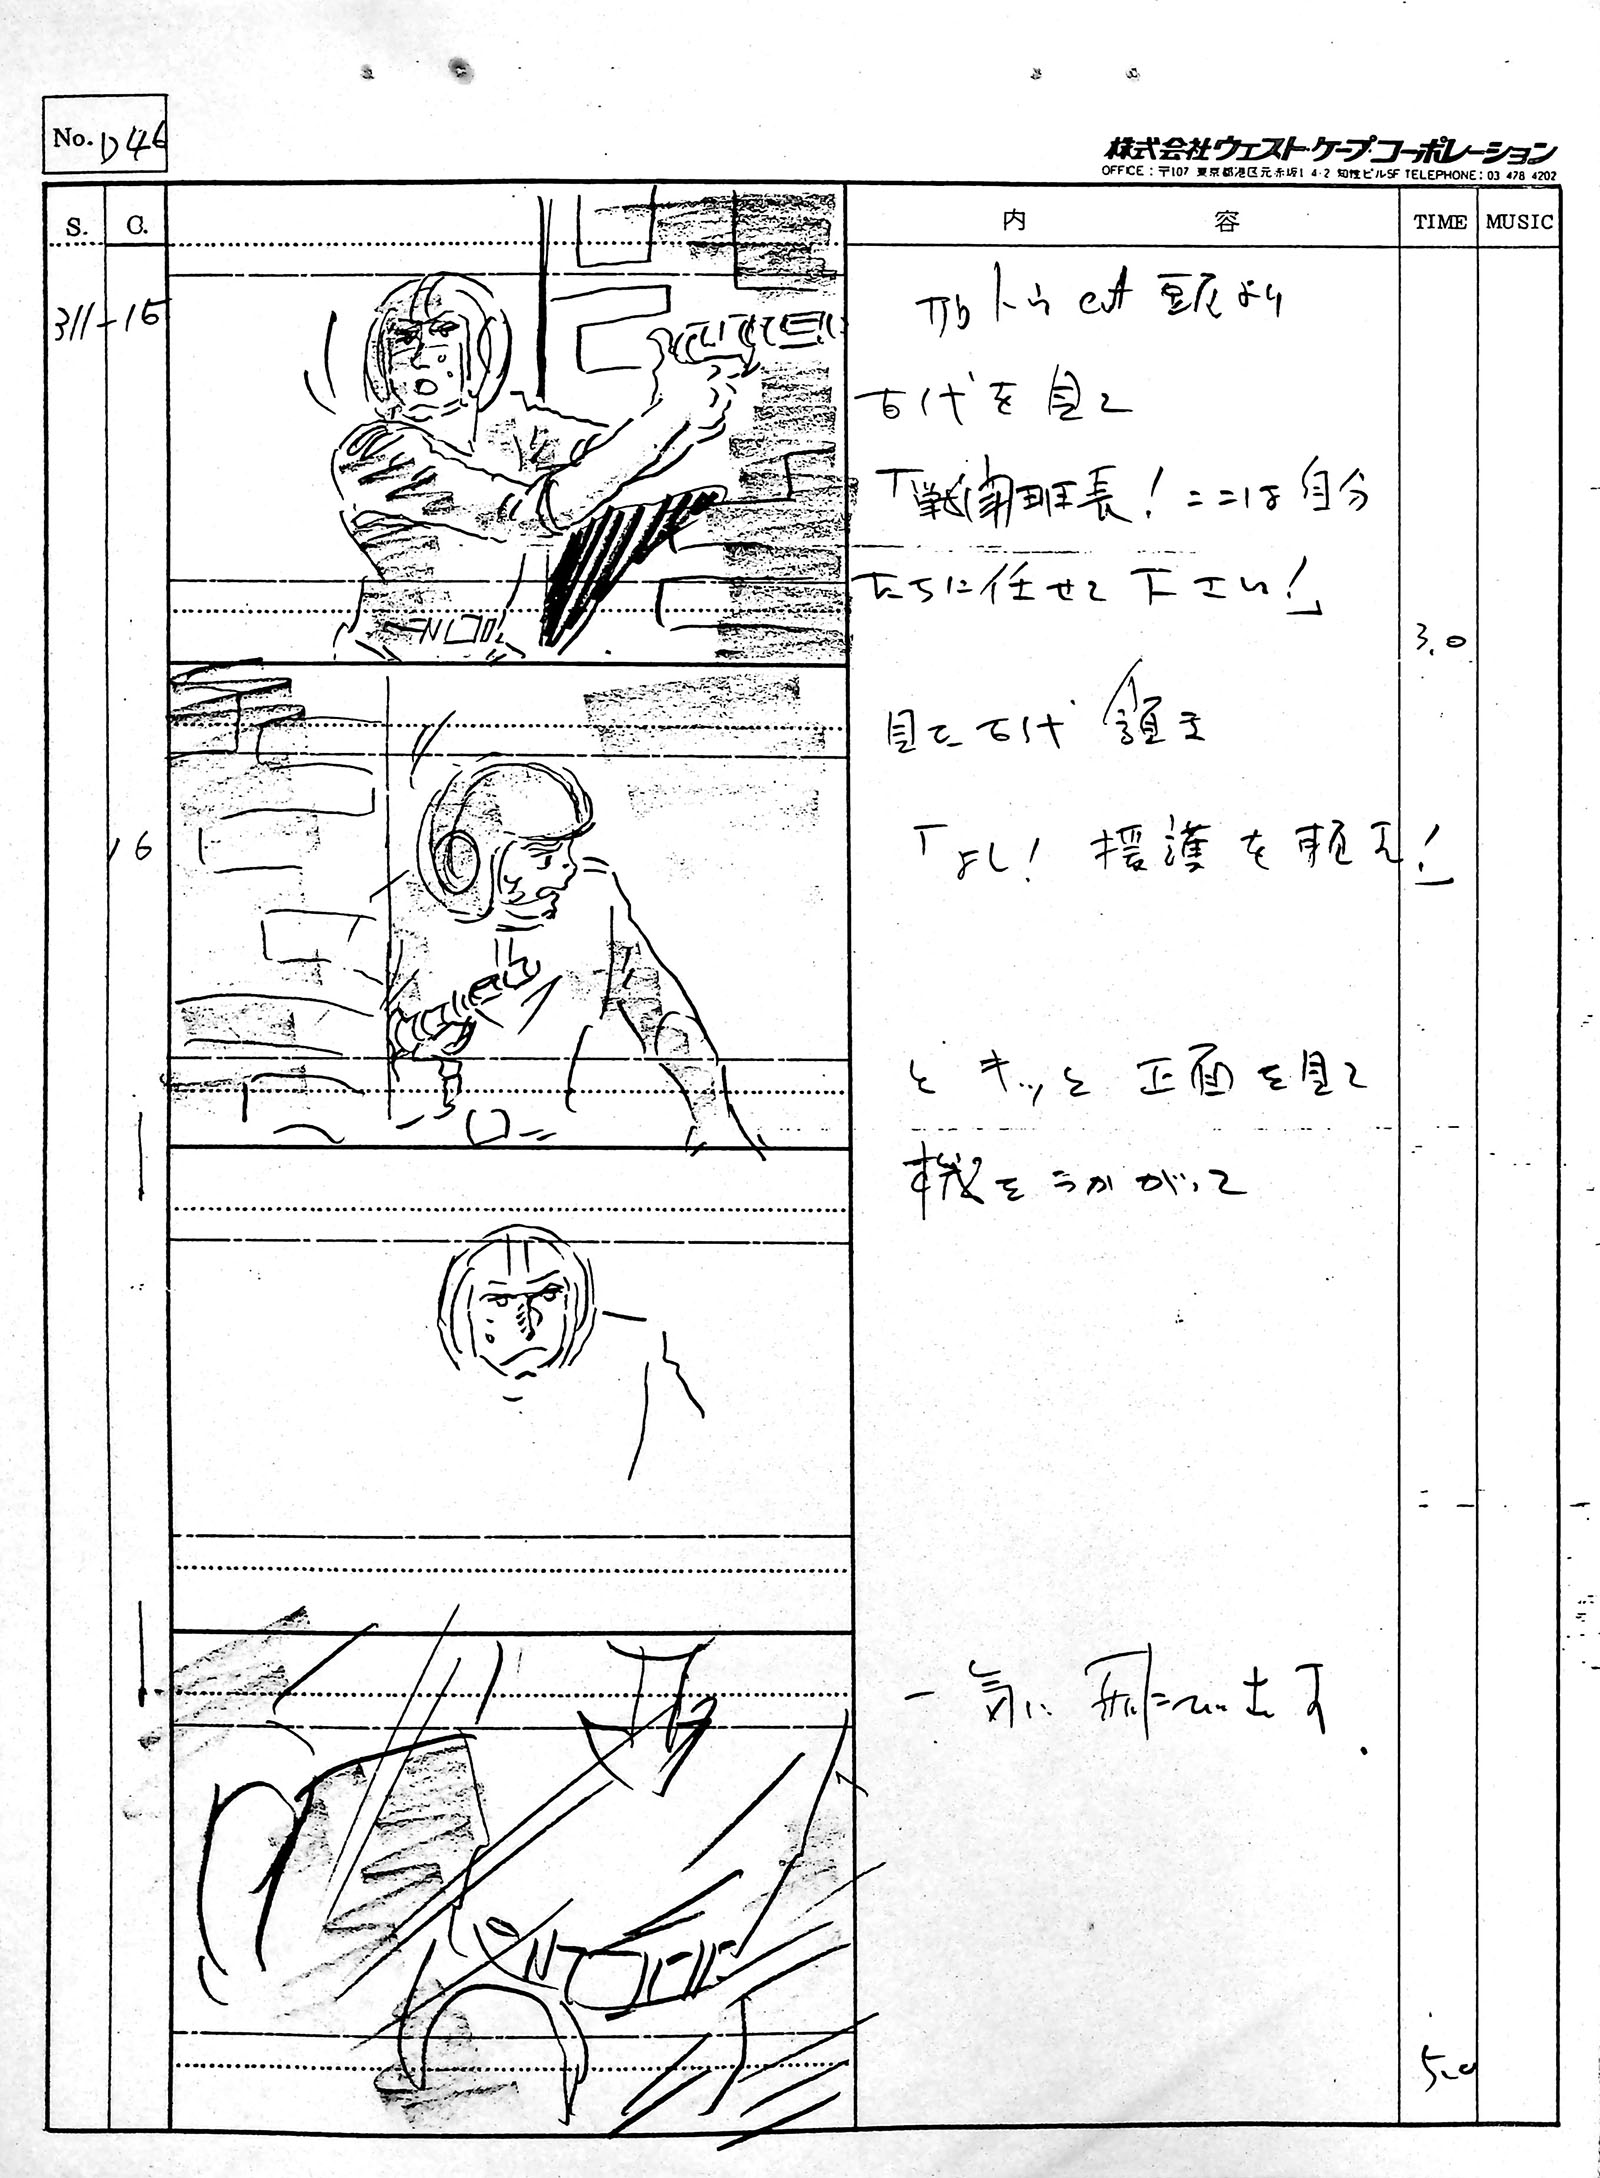 No. D46
株式会社ウェスト・ケープ・コーポレーション
OFFICE：〒107 東京都港区元赤坂1 4-2 知性ビル5F TELEPHONE：03 478 4202
S. C. 内容 TIME MUSIC
311-15
cut 頭より
古代を見て
「戦闘班長！ここは自分
たちに任せて下さい！」
3.0
16
見た古代 頷き
「よし！援護を頼む！」
と キッと 正面を見て
機をうかがって
一気に 飛び出す
5.0